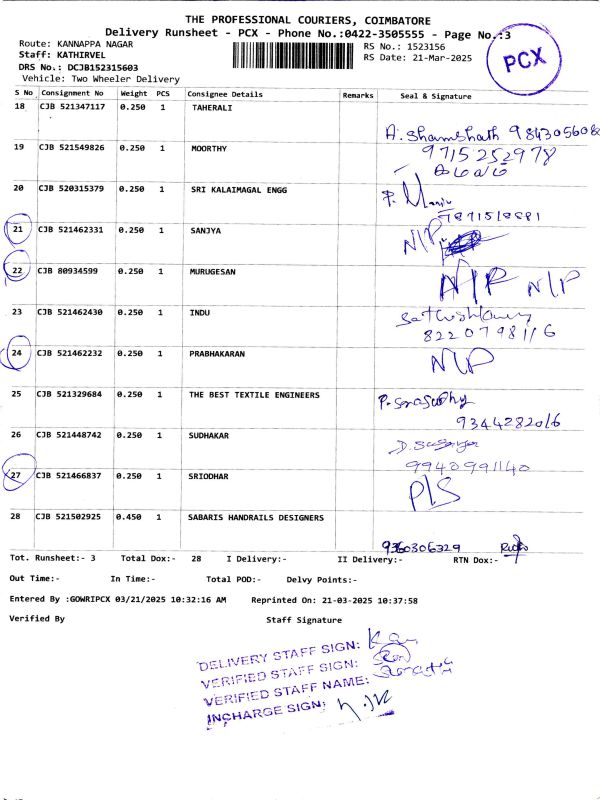 THE PROFESSIONAL COURIERS, COIMBATORE
Delivery Runsheet - PCX - Phone No.:0422-3505555 - Page No.:3
Route: KANNAPPA NAGAR RS No.: 1523156
Staff: KATHIRVEL RS Date: 21-Mar-2025
DRS No.: DCJB152315603
Vehicle: Two Wheeler Delivery
PCX
S No Consignment No Weight PCS Consignee Details Remarks Seal & Signature
18 CJB 521347117 0.250 1 TAHERALI
A. Shamshath 984305608
19 CJB 521549826 0.250 1 MOORTHY 9715252978
20 CJB 520315379 0.250 1 SRI KALAIMAGAL ENGG
7871518881
21 CJB 521462331 0.250 1 SANJYA N/P
22 CJB 80934599 0.250 1 MURUGESAN N/P N/P
23 CJB 521462430 0.250 1 INDU
8220798116
24 CJB 521462232 0.250 1 PRABHAKARAN N/P
25 CJB 521329684 0.250 1 THE BEST TEXTILE ENGINEERS
9344282016
26 CJB 521448742 0.250 1 SUDHAKAR
9940991140
27 CJB 521466837 0.250 1 SRIODHAR P/S
28 CJB 521502925 0.450 1 SABARIS HANDRAILS DESIGNERS
9360306329
Tot. Runsheet:- 3 Total Dox:- 28 I Delivery:- II Delivery:- RTN Dox:-
Out Time:- In Time:- Total POD:- Delvy Points:-
Entered By :GOWRIPCX 03/21/2025 10:32:16 AM Reprinted On: 21-03-2025 10:37:58
Verified By Staff Signature
DELIVERY STAFF SIGN:
VERIFIED STAFF SIGN:
VERIFIED STAFF NAME:
INCHARGE SIGN: